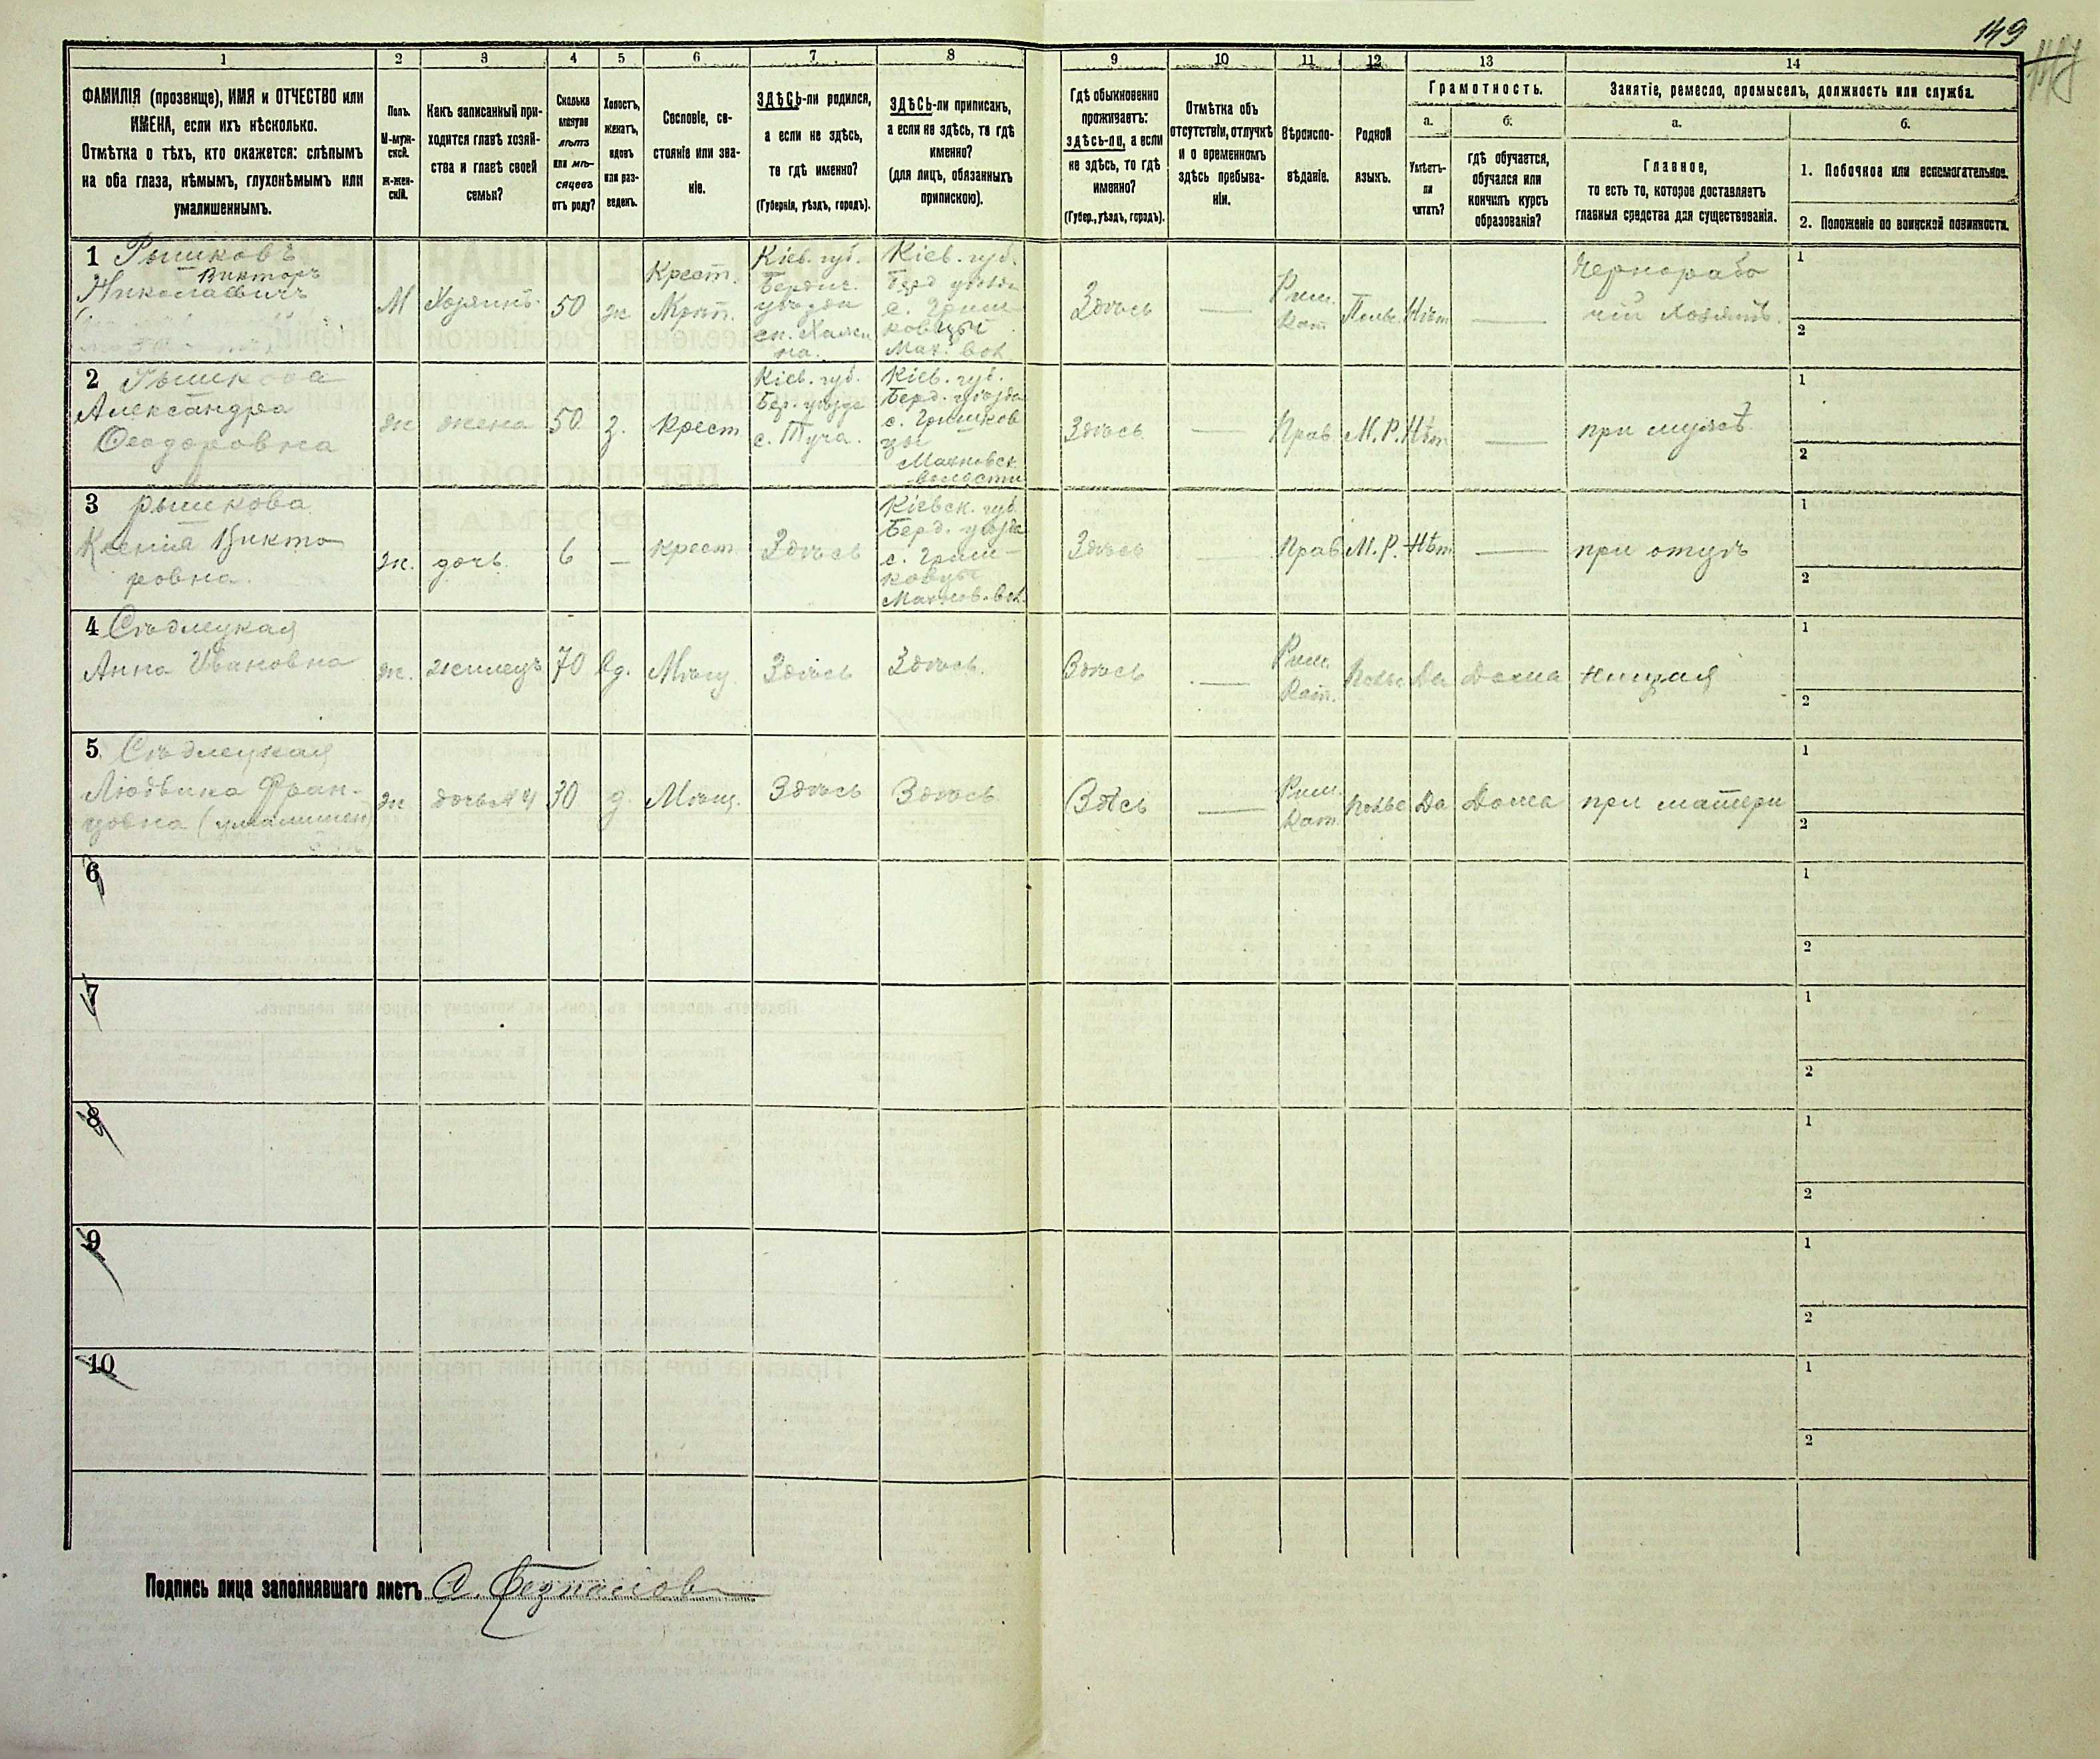 149
1 2 3 4 5 6 7 8 9 10 11 12 13 14
ФАМИЛІЯ (прозвище), ИМЯ и ОТЧЕСТВО или
ИМЕНА, если ихъ нѣсколько.
Отмѣтка о тѣхъ, кто окажется: слѣпымъ
на оба глаза, нѣмымъ, глухонѣмымъ или
умалишеннымъ.
Полъ.
М-муж-
ской.
Ж-жен-
скій.
Какъ записанный при-
ходится главѣ хозяй-
ства и главѣ своей
семьи?
Сколько
минуло
лѣтъ
или мѣ-
сяцевъ
отъ роду?
Холостъ,
женатъ,
вдовъ
или раз-
веденъ.
Сословіе, со-
стояніе или зва-
ніе.
ЗДѢСЬ-ли родился,
а если не здѣсь,
то гдѣ именно?
(Губернія, уѣздъ, городъ).
ЗДѢСЬ-ли приписанъ,
а если не здѣсь, то гдѣ
именно?
(для лицъ, обязанныхъ
припискою).
Гдѣ обыкновенно
проживаетъ:
здѣсь-ли, а если
не здѣсь, то гдѣ
именно?
(Губер., уѣздъ, городъ).
Отмѣтка объ
отсутствіи, отлучкѣ
и о временномъ
здѣсь пребыва-
ніи.
Вѣроиспо-
вѣданіе.
Родной
языкъ.
Грамотность.
а.
Умѣетъ-
ли
читать?
б.
гдѣ обучается,
обучался или
кончилъ курсъ
образованія?
Занятіе, ремесло, промыселъ, должность или служба.
а.
Главное,
то есть то, которое доставляетъ
главныя средства для существованія.
б.
1. Побочное или вспомогательное.
2. Положеніе по воинской повинности.
1 Рышковъ
Викторъ
Николаевичъ
М
Хозяинъ
50
ж
Крест.
Кіев. губ.
Бердич.
уѣзда
Кіев. губ.
Берд уѣзда
с. Гриш-
ковцы
Мах. вол.
Здѣсь
—
Рим.
Кат.
Польс.
Нѣт
—
Чернорабо
чій хозяинъ
1
2
2 Рышкова
Александра
Феодоровна
ж
жена
50
з.
Крест
Кіев. губ.
Бер. уѣзда
с. Туча.
Кіев. губ.
Берд. уѣзда
с. Гришков
цы
Махновск
волости
Здѣсь
—
Прав
М. Р.
Нѣт
—
при мужѣ
1
2
3 Рышкова
Ксенія Викто
ровна.
ж.
дочь
6
—
крест
Здѣсь
Кіевск. губ
Берд. уѣзда
с. Гриш-
ковцы
Махнов. вол.
Здѣсь
Прав
М. Р.
Нѣт
—
при отцѣ
1
2
4 Сѣдлецкая
Анна Ивановна
ж.
жилецъ
70
вд.
Мѣщ.
Здѣсь
Здѣсь.
Здѣсь
—
Рим.
Кат.
Польс
Да
Дома
нищая
1
2
5. Сѣдлецкая
Людвика Фран-
цовна (умалишен
ж
дочь № 4
30
д.
Мѣщ.
Здѣсь
Здѣсь
Здѣсь
—
Рим.
Кат.
Польс
Да
Дома
при матери
1
2
6
1
2
7
1
2
8
1
2
9
1
2
10
1
2
Подпись лица заполнявшаго листъ